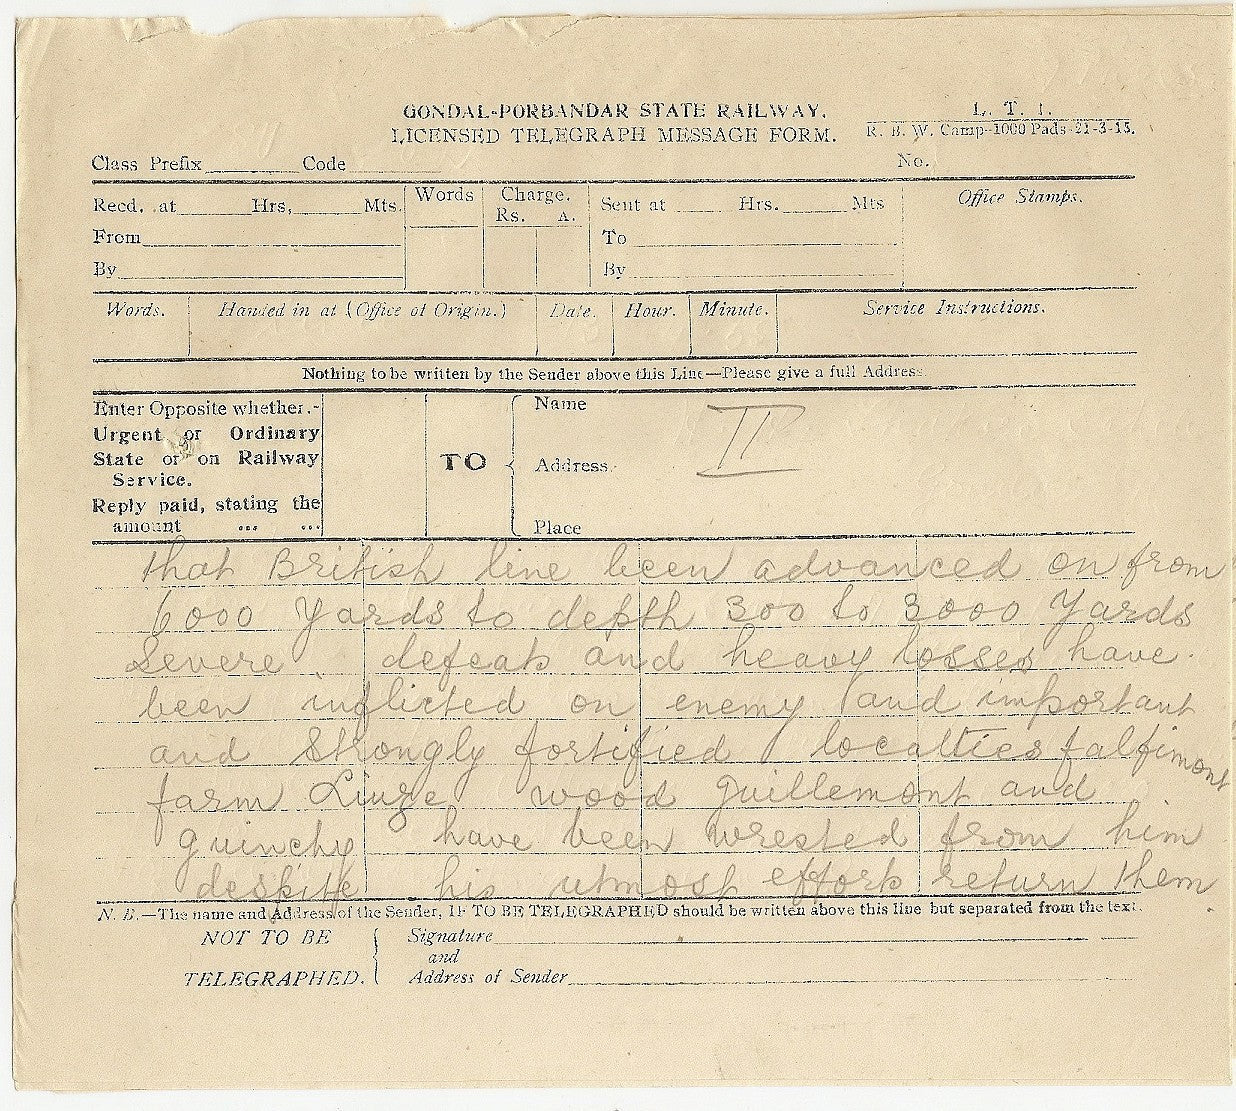 GONDAL-PORBANDAR STATE RAILWAY.
LICENSED TELEGRAPH MESSAGE FORM.
L. T. 1.
R. B. W. Camp-1000 Pads-21-3-15.
Class Prefix Code
No.
Recd. at Hrs, Mts.
Words
Charge.
Rs. A.
Sent at Hrs. Mts
Office Stamps.
From
To
By
By
Words. Handed in at (Office of Origin.) Date. Hour. Minute. Service Instructions.
Nothing to be written by the Sender above this Line—Please give a full Address.
Enter Opposite whether.-
Urgent or Ordinary
State or on Railway
Service.
Reply paid, stating the
amount ... ...
TO
Name
Address.
Place
II
that British line been advanced on from
6000 Yards to depth 300 to 3000 Yards
Severe defeat and heavy losses have.
been inflicted on enemy and important
and Strongly fortified localties falfimont
farm Liuze wood guillemont and
guinchy have been wrested from him
despite his utmost effort return them
N. B.—The name and Address of the Sender, IF TO BE TELEGRAPHED should be written above this line but separated from the text.
NOT TO BE
TELEGRAPHED.
Signature
and
Address of Sender